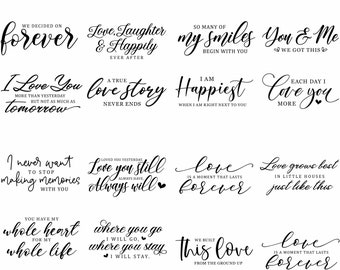 WE DECIDED ON
forever
Love, Laughter
& Happily
EVER AFTER
SO MANY OF
my smiles
BEGIN WITH YOU
You & Me
WE GOT THIS
I Love You
MORE THAN YESTERDAY
BUT NOT AS MUCH AS
tomorrow
A TRUE
love story
NEVER ENDS
I AM
Happiest
WHEN I AM RIGHT NEXT TO YOU
EACH DAY I
Love you
MORE
I never want
TO STOP
making memories
WITH YOU
I LOVED YOU YESTERDAY
Love you still
ALWAYS HAVE
Always will
love
IS A MOMENT THAT LASTS
forever
Love grows best
IN LITTLE HOUSES
just like this
YOU HAVE MY
whole heart
FOR MY
whole life
where you go
I WILL GO,
where you stay
I WILL STAY.
WE BUILT
this love
FROM THE GROUND UP
love
IS A MOMENT THAT LASTS
forever